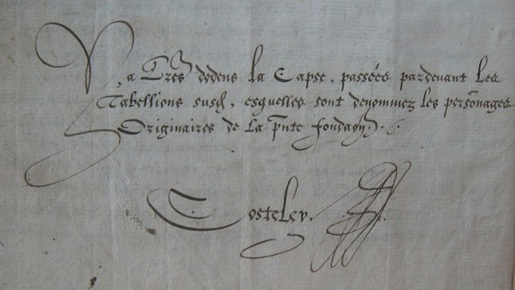 Y a Lres dedens la Capse, passées pardevant les
Tabellions susd, esquelles sont denommez les personnages
Originaires de la pnte fondaōn.
Costeley.